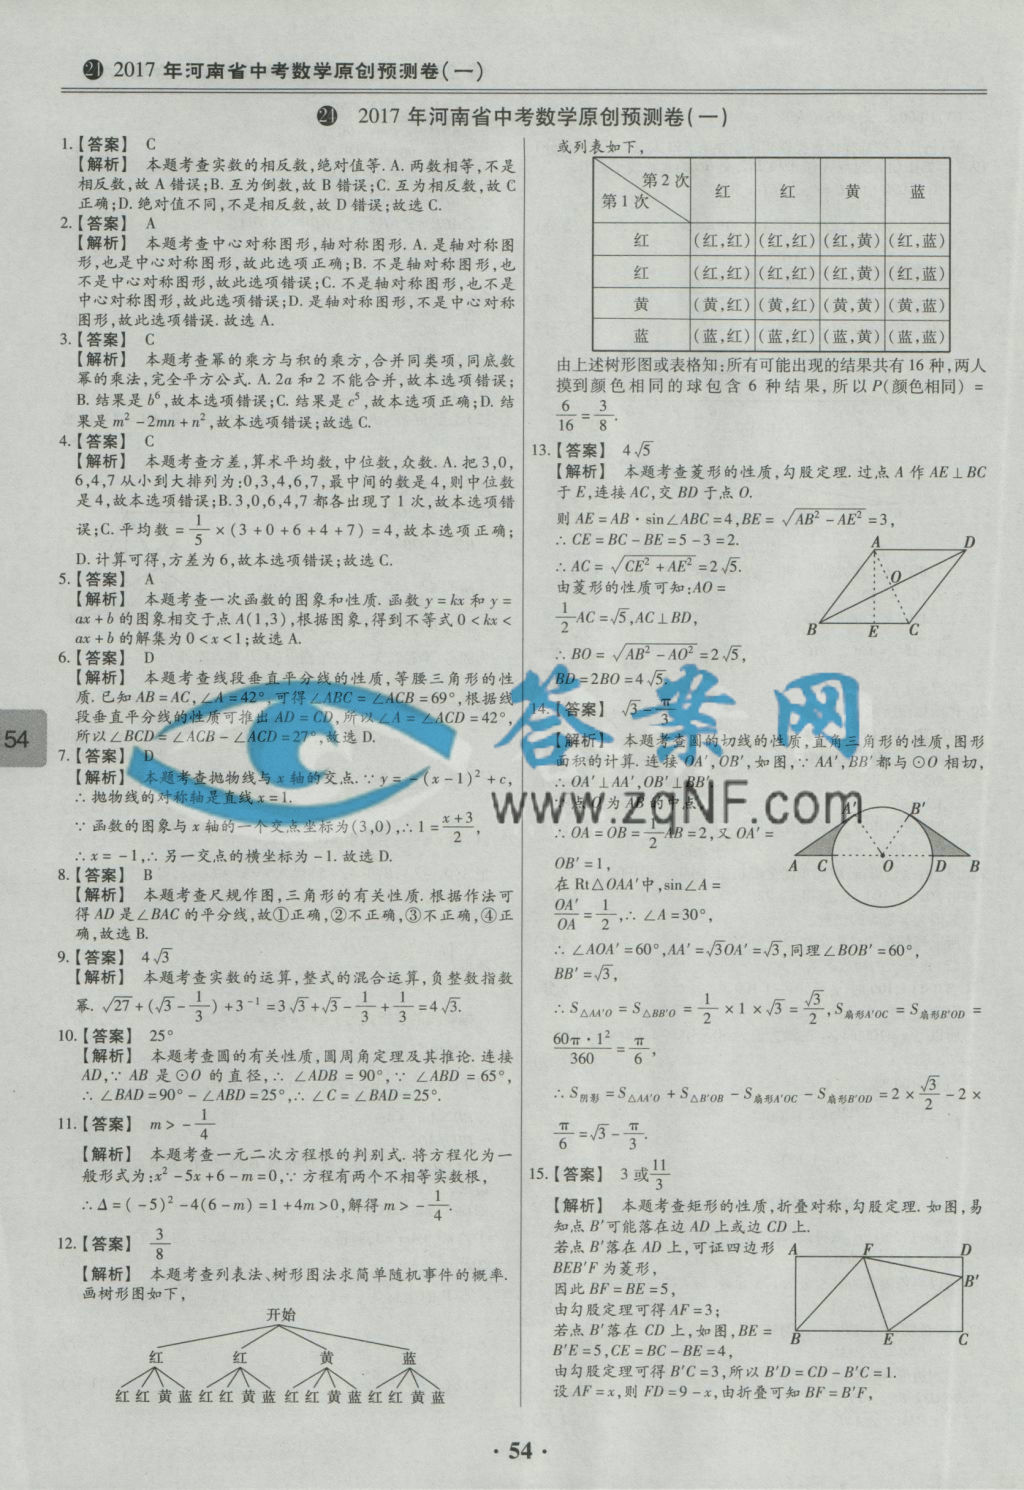 ㉑ 2017 年河南省中考数学原创预测卷(一)
㉑ 2017 年河南省中考数学原创预测卷(一)
1.【答案】 C
【解析】 本题考查实数的相反数,绝对值等. A. 两数相等,不是
相反数,故 A 错误;B. 互为倒数,故 B 错误;C. 互为相反数,故 C
正确;D. 绝对值不同,不是相反数,故 D 错误;故选 C.
2.【答案】 A
【解析】 本题考查中心对称图形,轴对称图形. A. 是轴对称图
形,也是中心对称图形,故此选项正确;B. 不是轴对称图形,也
不是中心对称图形,故此选项错误;C. 不是轴对称图形,也不是
中心对称图形,故此选项错误;D. 是轴对称图形,不是中心对称
图形,故此选项错误. 故选 A.
3.【答案】 C
【解析】 本题考查幂的乘方与积的乘方,合并同类项,同底数
幂的乘法,完全平方公式. A. 2a 和 2 不能合并,故本选项错误;
B. 结果是 b⁶,故本选项错误;C. 结果是 c⁵,故本选项正确;D. 结
果是 m²-2mn+n²,故本选项错误;故选 C.
4.【答案】 C
【解析】 本题考查方差,算术平均数,中位数,众数. A. 把 3,0,
6,4,7 从小到大排列为:0,3,4,6,7,最中间的数是 4,则中位数
是 4,故本选项错误;B. 3,0,6,4,7 都各出现了 1 次,故本选项错
误;C. 平均数 = 1/5 ×(3+0+6+4+7)=4,故本选项正确;
D. 计算可得,方差为 6,故本选项错误;故选 C.
5.【答案】 A
【解析】 本题考查一次函数的图象和性质. 函数 y=kx 和 y=
ax+b 的图象相交于点 A(1,3),根据图象,得到不等式 0<kx<
ax+b 的解集为 0<x<1;故选 A.
6.【答案】 D
【解析】 本题考查线段垂直平分线的性质,等腰三角形的性
质. 已知 AB=AC,∠A=42°,可得∠ABC=∠ACB=69°,根据线
段垂直平分线的性质可推出 AD=CD,所以∠A=∠ACD=42°,
所以∠BCD=∠ACB-∠ACD=27°,故选 D.
7.【答案】 D
【解析】 本题考查抛物线与 x 轴的交点. ∵ y=-(x-1)²+c,
∴ 抛物线的对称轴是直线 x=1.
∵ 函数的图象与 x 轴的一个交点坐标为(3,0),∴ 1=(x+3)/2,
∴ x=-1,∴ 另一交点的横坐标为-1. 故选 D.
8.【答案】 B
【解析】 本题考查尺规作图,三角形的有关性质. 根据作法可
得 AD 是∠BAC 的平分线,故①正确,②不正确,③不正确,④正
确,故选 B.
9.【答案】 4√3
【解析】 本题考查实数的运算,整式的混合运算,负整数指数
幂. √27+(√3-1/3)+3⁻¹=3√3+√3-1/3+1/3=4√3.
10.【答案】 25°
【解析】 本题考查圆的有关性质,圆周角定理及其推论. 连接
AD,∵ AB 是⊙O 的直径,∴ ∠ADB=90°,∵ ∠ABD=65°,
∴ ∠BAD=90°-∠ABD=25°,∴ ∠C=∠BAD=25°.
11.【答案】 m>-1/4
【解析】 本题考查一元二次方程根的判别式. 将方程化为一
般形式为:x²-5x+6-m=0,∵ 方程有两个不相等实数根,
∴ Δ=(-5)²-4(6-m)=1+4m>0,解得 m>-1/4.
12.【答案】 3/8
【解析】 本题考查列表法、树形图法求简单随机事件的概率.
画树形图如下,
开始
红 红 黄 蓝
红 红 黄 蓝 红 红 黄 蓝 红 红 黄 蓝 红 红 黄 蓝
或列表如下,
第 2 次
第 1 次 红 红 黄 蓝
红 (红,红) (红,红) (红,黄) (红,蓝)
红 (红,红) (红,红) (红,黄) (红,蓝)
黄 (黄,红) (黄,红) (黄,黄) (黄,蓝)
蓝 (蓝,红) (蓝,红) (蓝,黄) (蓝,蓝)
由上述树形图或表格知:所有可能出现的结果共有 16 种,两人
摸到颜色相同的球包含 6 种结果,所以 P(颜色相同)=
6/16=3/8.
13.【答案】 4√5
【解析】 本题考查菱形的性质,勾股定理. 过点 A 作 AE⊥BC
于 E,连接 AC,交 BD 于点 O.
则 AE=AB·sin∠ABC=4,BE=√(AB²-AE²)=3,
∴ CE=BC-BE=5-3=2.
∴ AC=√(CE²+AE²)=2√5.
由菱形的性质可知:AO=
1/2 AC=√5,AC⊥BD,
∴ BO=√(AB²-AO²)=2√5,
BD=2BO=4√5.
A D O B E C
14.【答案】 √3-π/3
【解析】 本题考查圆的切线的性质,直角三角形的性质,图形
面积的计算. 连接 OA′,OB′,如图,∵ AA′,BB′都与⊙O 相切,
∴ OA′⊥AA′,OB′⊥BB′,
∵ 点 O 为 AB 的中点,
∴ OA=OB=1/2 AB=2,又 OA′=
OB′=1,
在 Rt△OAA′中,sin∠A=
OA′/OA=1/2,∴ ∠A=30°,
A′ B′ A C O D B
∴ ∠AOA′=60°,AA′=√3OA′=√3,同理∠BOB′=60°,
BB′=√3,
∴ S△AA′O=S△BB′O=1/2×1×√3=√3/2,S扇形A′OC=S扇形B′OD=
60π·1²/360=π/6,
∴ S阴影=S△AA′O+S△B′OB-S扇形A′OC-S扇形B′OD=2×√3/2-2×
π/6=√3-π/3.
15.【答案】 3 或 11/3
【解析】 本题考查矩形的性质,折叠对称,勾股定理. 如图,易
知点 B′可能落在边 AD 上或边 CD 上.
若点 B′落在 AD 上,可证四边形
BEB′F 为菱形,
因此 BF=BE=5,
由勾股定理可得 AF=3;
若点 B′落在 CD 上,如图,BE=
B′E=5,CE=BC-BE=4,
A F D B′ B E C
由勾股定理可得 B′C=3,所以 B′D=CD-B′C=1.
设 AF=x,则 FD=9-x,由折叠可知 BF=B′F,
54
· 54 ·
答案网
www.zqNF.com